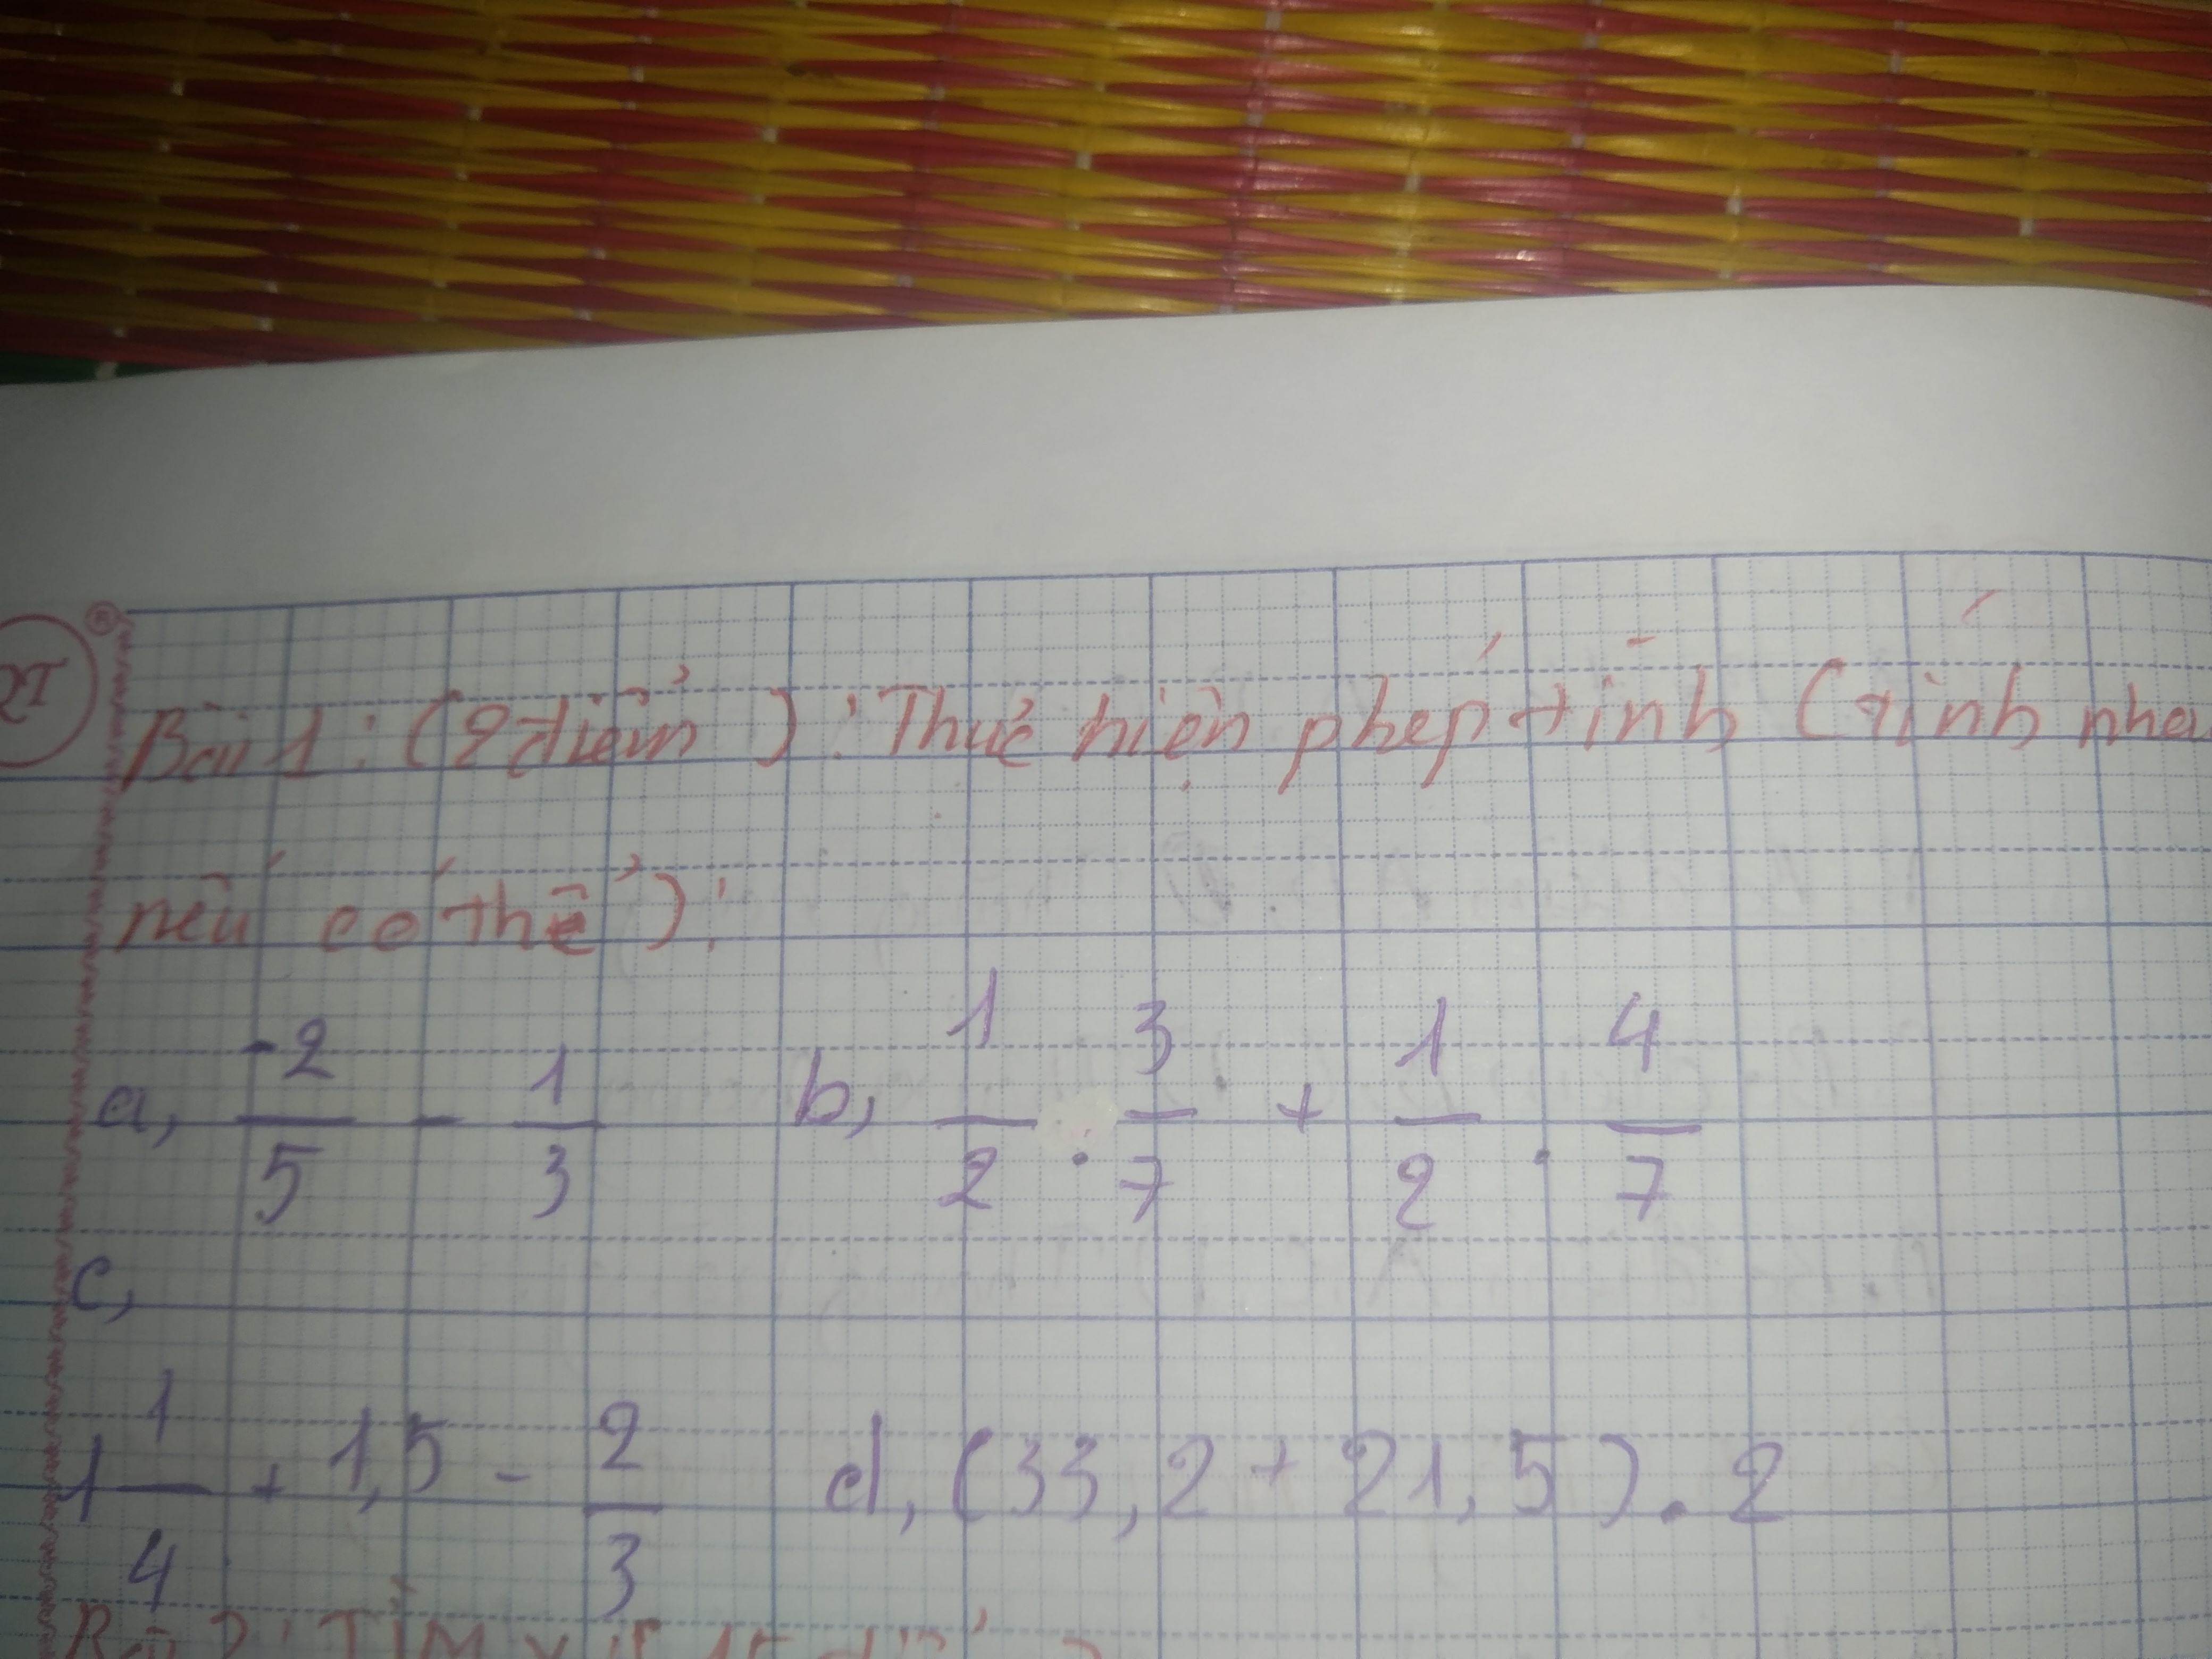 Bài 1: (2 điểm): Thực hiện phép tính (tính nha
nếu có thể):
a, -2/5 - 1/3 b, 1/2 . 3/7 + 1/2 . 4/7
c,
1 1/4 + 1,5 - 2/3 d, (33,2 + 21,5) . 2
Bài 2: Tìm x